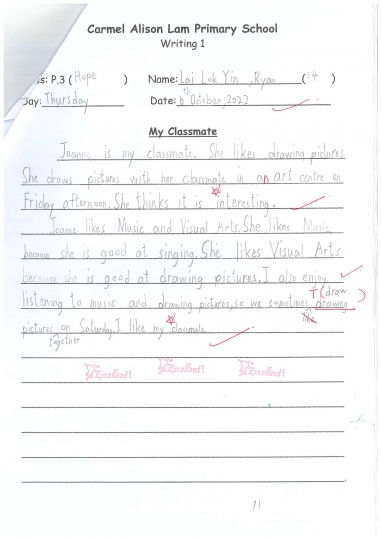 Carmel Alison Lam Primary School
Writing 1
s: P.3 ( Hope ) Name: Lai Lok Yin, Ryan (14)
Day: Thursday Date: 6th October, 2022
My Classmate
Joanne is my classmate. She likes drawing pictures.
She draws pictures with her classmate in an art centre on
Friday afternoon. She thinks it is interesting.
Joanne likes Music and Visual Arts. She likes Music
because she is good at singing. She likes Visual Arts
because she is good at drawing pictures. I also enjoy
listening to music and drawing pictures, so we sometimes drawing
T (draw
like
pictures on Saturday. I like my classmate.
together
Excellent! Excellent! Excellent!